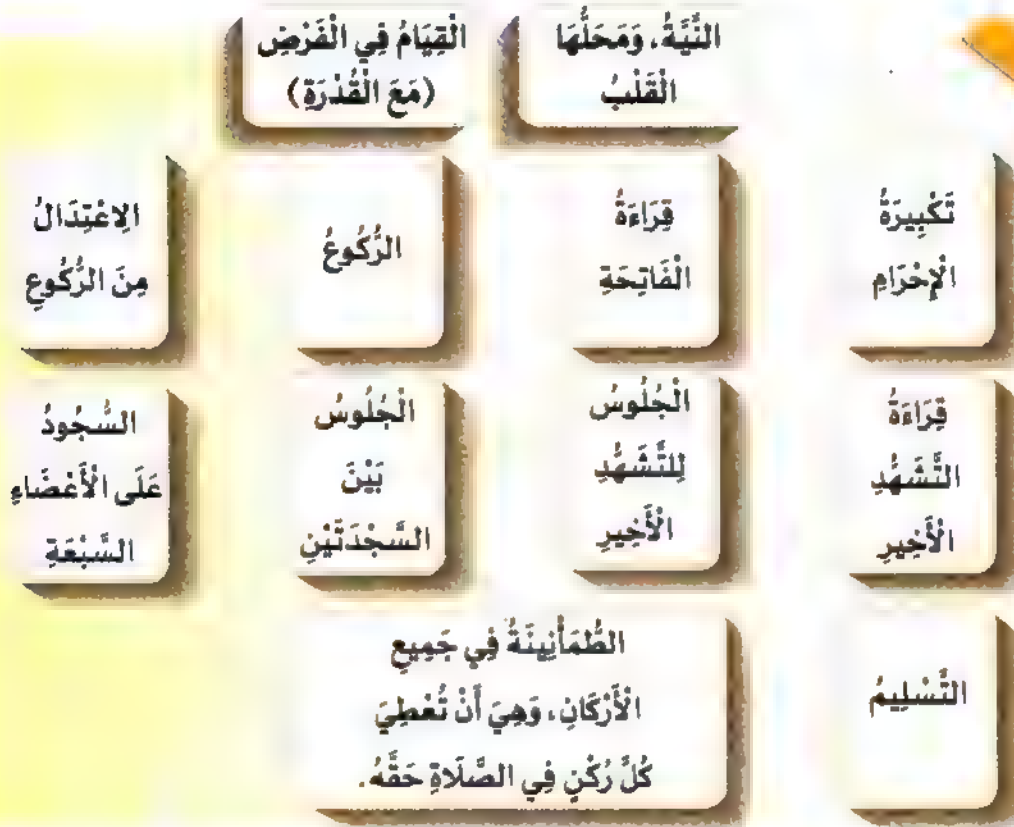 النِّيَّةُ، وَمَحَلُّهَا
الْقَلْبُ
الْقِيَامُ فِي الْفَرْضِ
(مَعَ الْقُدْرَةِ)
تَكْبِيرَةُ
الْإِحْرَامِ
قِرَاءَةُ
الْفَاتِحَةِ
الرُّكُوعُ
الِاعْتِدَالُ
مِنَ الرُّكُوعِ
قِرَاءَةُ
التَّشَهُّدِ
الْأَخِيرِ
الْجُلُوسُ
لِلتَّشَهُّدِ
الْأَخِيرِ
الْجُلُوسُ
بَيْنَ
السَّجْدَتَيْنِ
السُّجُودُ
عَلَى الْأَعْضَاءِ
السَّبْعَةِ
التَّسْلِيمُ
الطُّمَأْنِينَةُ فِي جَمِيعِ
الْأَرْكَانِ، وَهِيَ أَنْ تُعْطِيَ
كُلَّ رُكْنٍ فِي الصَّلَاةِ حَقَّهُ.